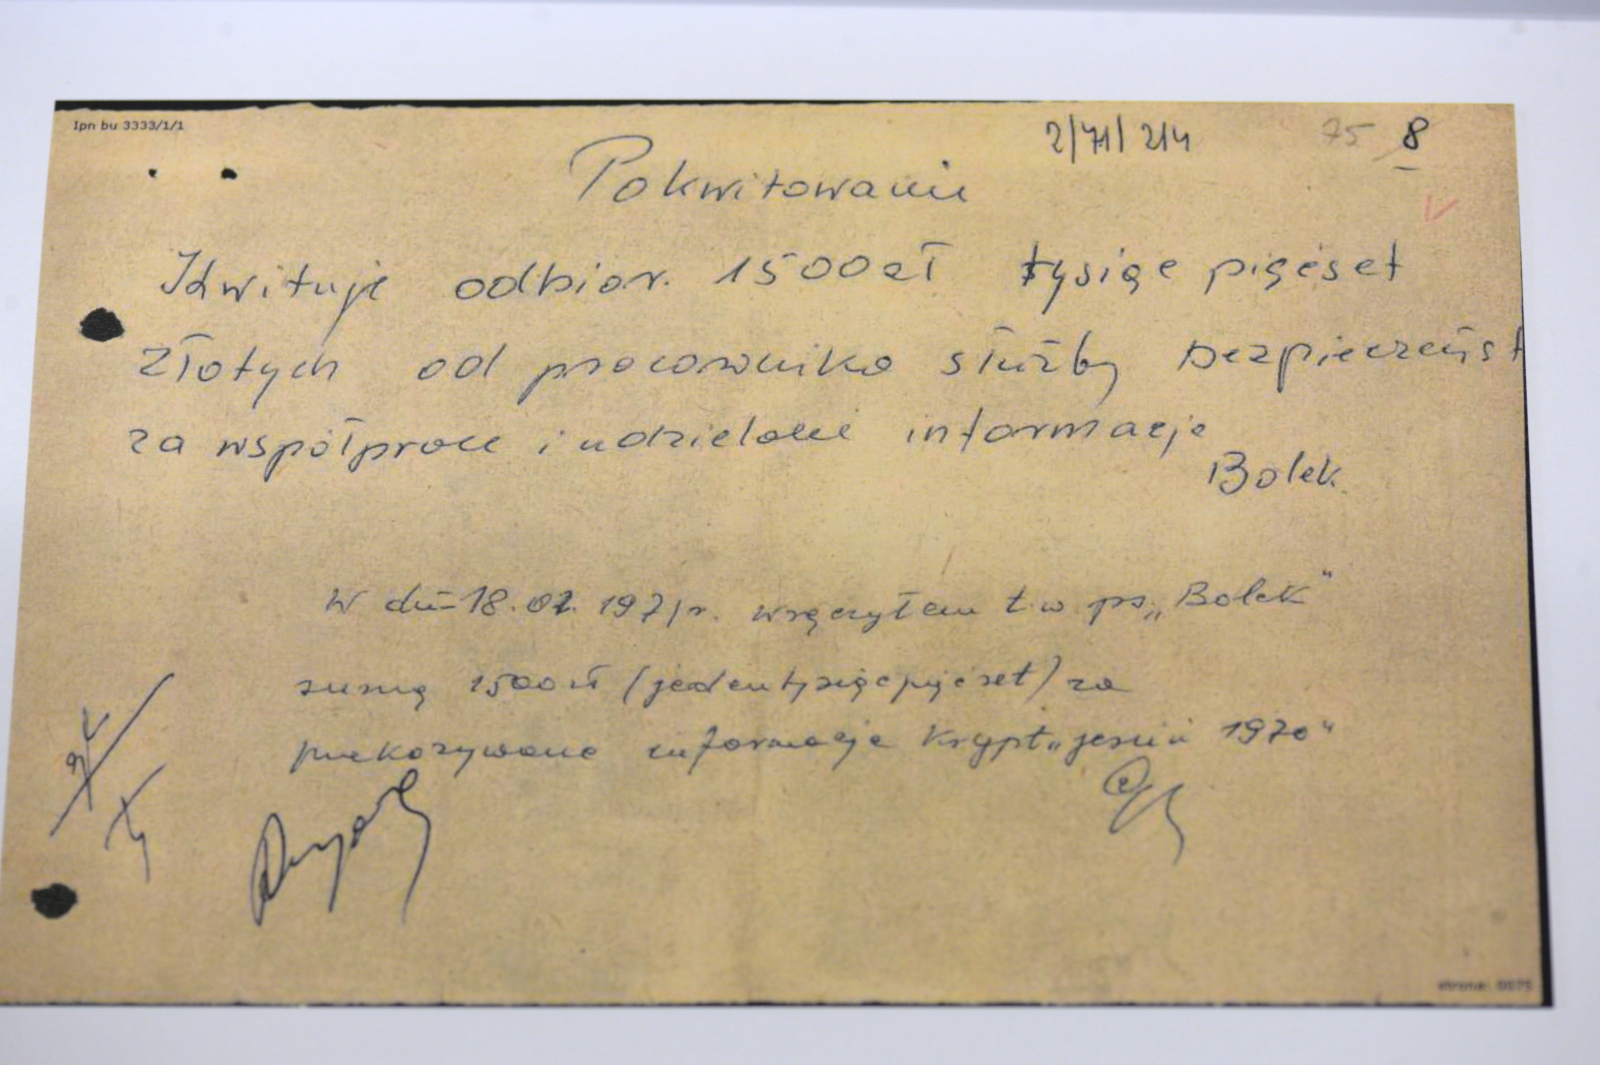 Ipn bu 3333/1/1
2/71/214 75 8
Pokwitowanie
Kwituje odbior. 1500zł tysiąc pięćset
złotych od pracownika służby bezpieczeńst
za współprace i udzielone informacje
Bolek.
W dn-18.01.1971r. wręczyłem t.w ps „Bolek"
sumę 1500zł (jeden tysiąc pięćset) za
przekazywane informacje krypt „jesień 1970"
strona: 0075